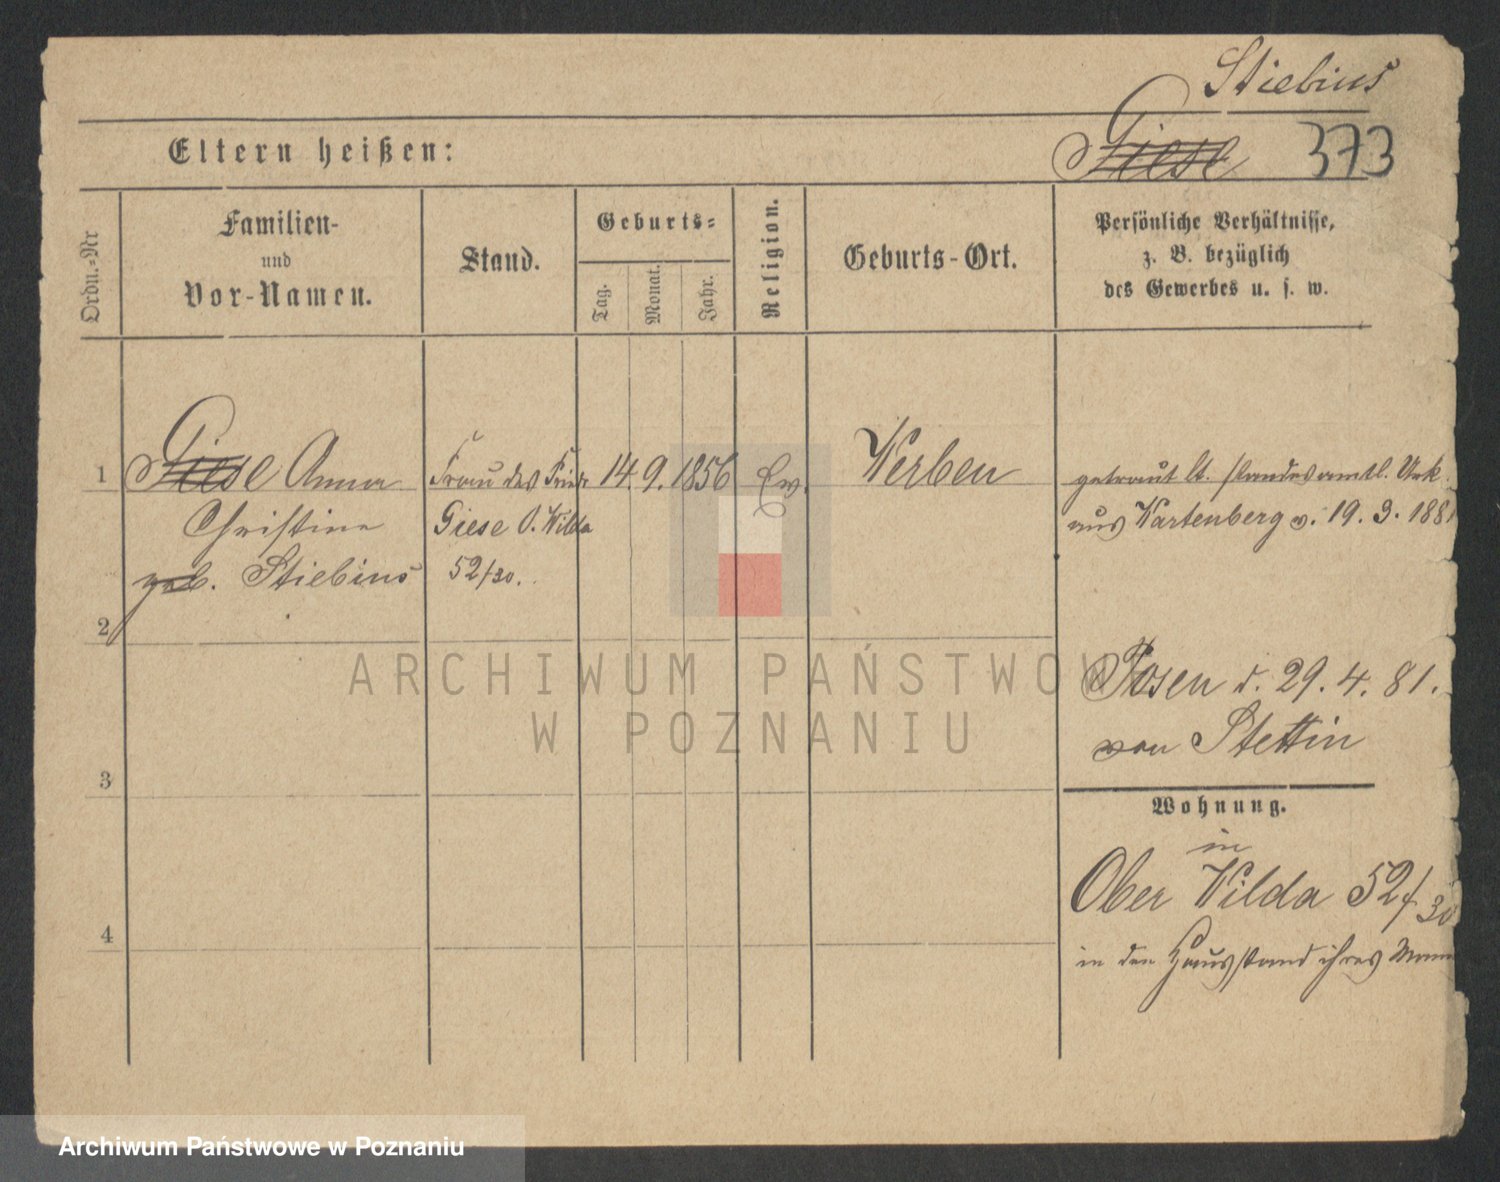 Stiebius
Eltern heißen:
Giese 373
Ordn.-Nr
Familien-
und
Vor-Namen.
Stand.
Geburts-
Tag.
Monat.
Jahr.
Religion.
Geburts-Ort.
Persönliche Verhältnisse,
z. B. bezüglich
des Gewerbes u. s. w.
1 Giese Anna
Christine
geb. Stiebius
Frau des Friedr
Giese O. Wilda
52/30.
14. 9. 1856
Ev.
Werben
getraut lt. standesamtl. Urk.
aus Wartenberg v. 19. 3. 1881
2
Posen d. 29. 4. 81.
von Stettin
3
Wohnung.
in
Ober Wilda 52/30
in den Hausstand ihres Mann
4
ARCHIWUM PAŃSTWOW
W POZNANIU
Archiwum Państwowe w Poznaniu